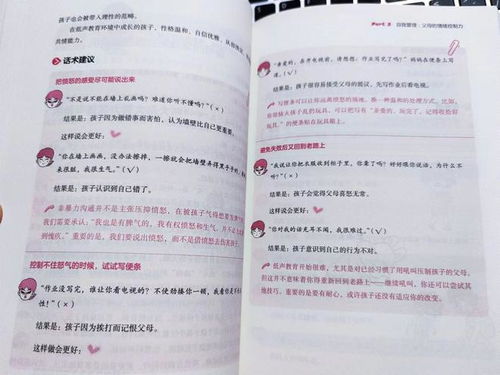 孩子也会被带入理性的范畴。
在低声教育环境中成长的孩子,性格温和、自信优雅、
共情能力。
话术建议
把愤怒的感受尽可能说出来
“不是说不能在墙上乱画吗?难道你听不懂吗?”(×)
结果是:孩子因为做错事而害怕,认为墙壁比自己更重要。
这样说会更好:
“你在墙上画画,没办法擦掉,一擦就会把墙壁弄得黑乎乎的,
来很脏,我很生气。”(√)
结果是:孩子认识到自己错了。
非暴力沟通并不是主张压抑愤怒,在被孩子气得想要发
我们需要承认:“我也是有脾气的,我有权愤怒和生气,并不
到愧疚。”重要的是,我们要说出愤怒,而不是借愤怒去伤害孩子
控制不住怒气的时候,试试写便条
“作业没写完,谁让你看电视的?不使劲揍你一顿,我看你是
性!”(×)
结果是:孩子因为挨打而记恨父母。
这样做会更好:
Part 3 自我管理:父母的情绪控制力
“亲爱的,在开电视前,请想想:作业写完了吗?”妈妈在便条上写
道。(√)
结果是:孩子很容易接受父母的提议,先写作业后看电视。
写便条可以让你远离愤怒的情境,换一种温和的处理方式。比如,
你很恼火孩子乱扔玩具,可以把写有“亲爱的,玩完了,记得收拾好
玩具。”的便条贴在玩具箱上。
避免失效后又回到老路上
“我说让你把衣服收到柜子里,你聋了吗?好好跟你说话,为什么不
听?”(×)
结果是:孩子会觉得父母喜怒无常。
这样说会更好:
“你对我的话充耳不闻,我很难过。”(√)
结果是:孩子意识到自己的行为不对。
低声教育开始很难,尤其是对已经习惯了用吼叫压制孩子的父母,
但这并不意味着你得重新回到老路上——继续吼叫,你还可以尝试其
他技巧。重要的是要有耐心,或许孩子还没有适应你的改变。